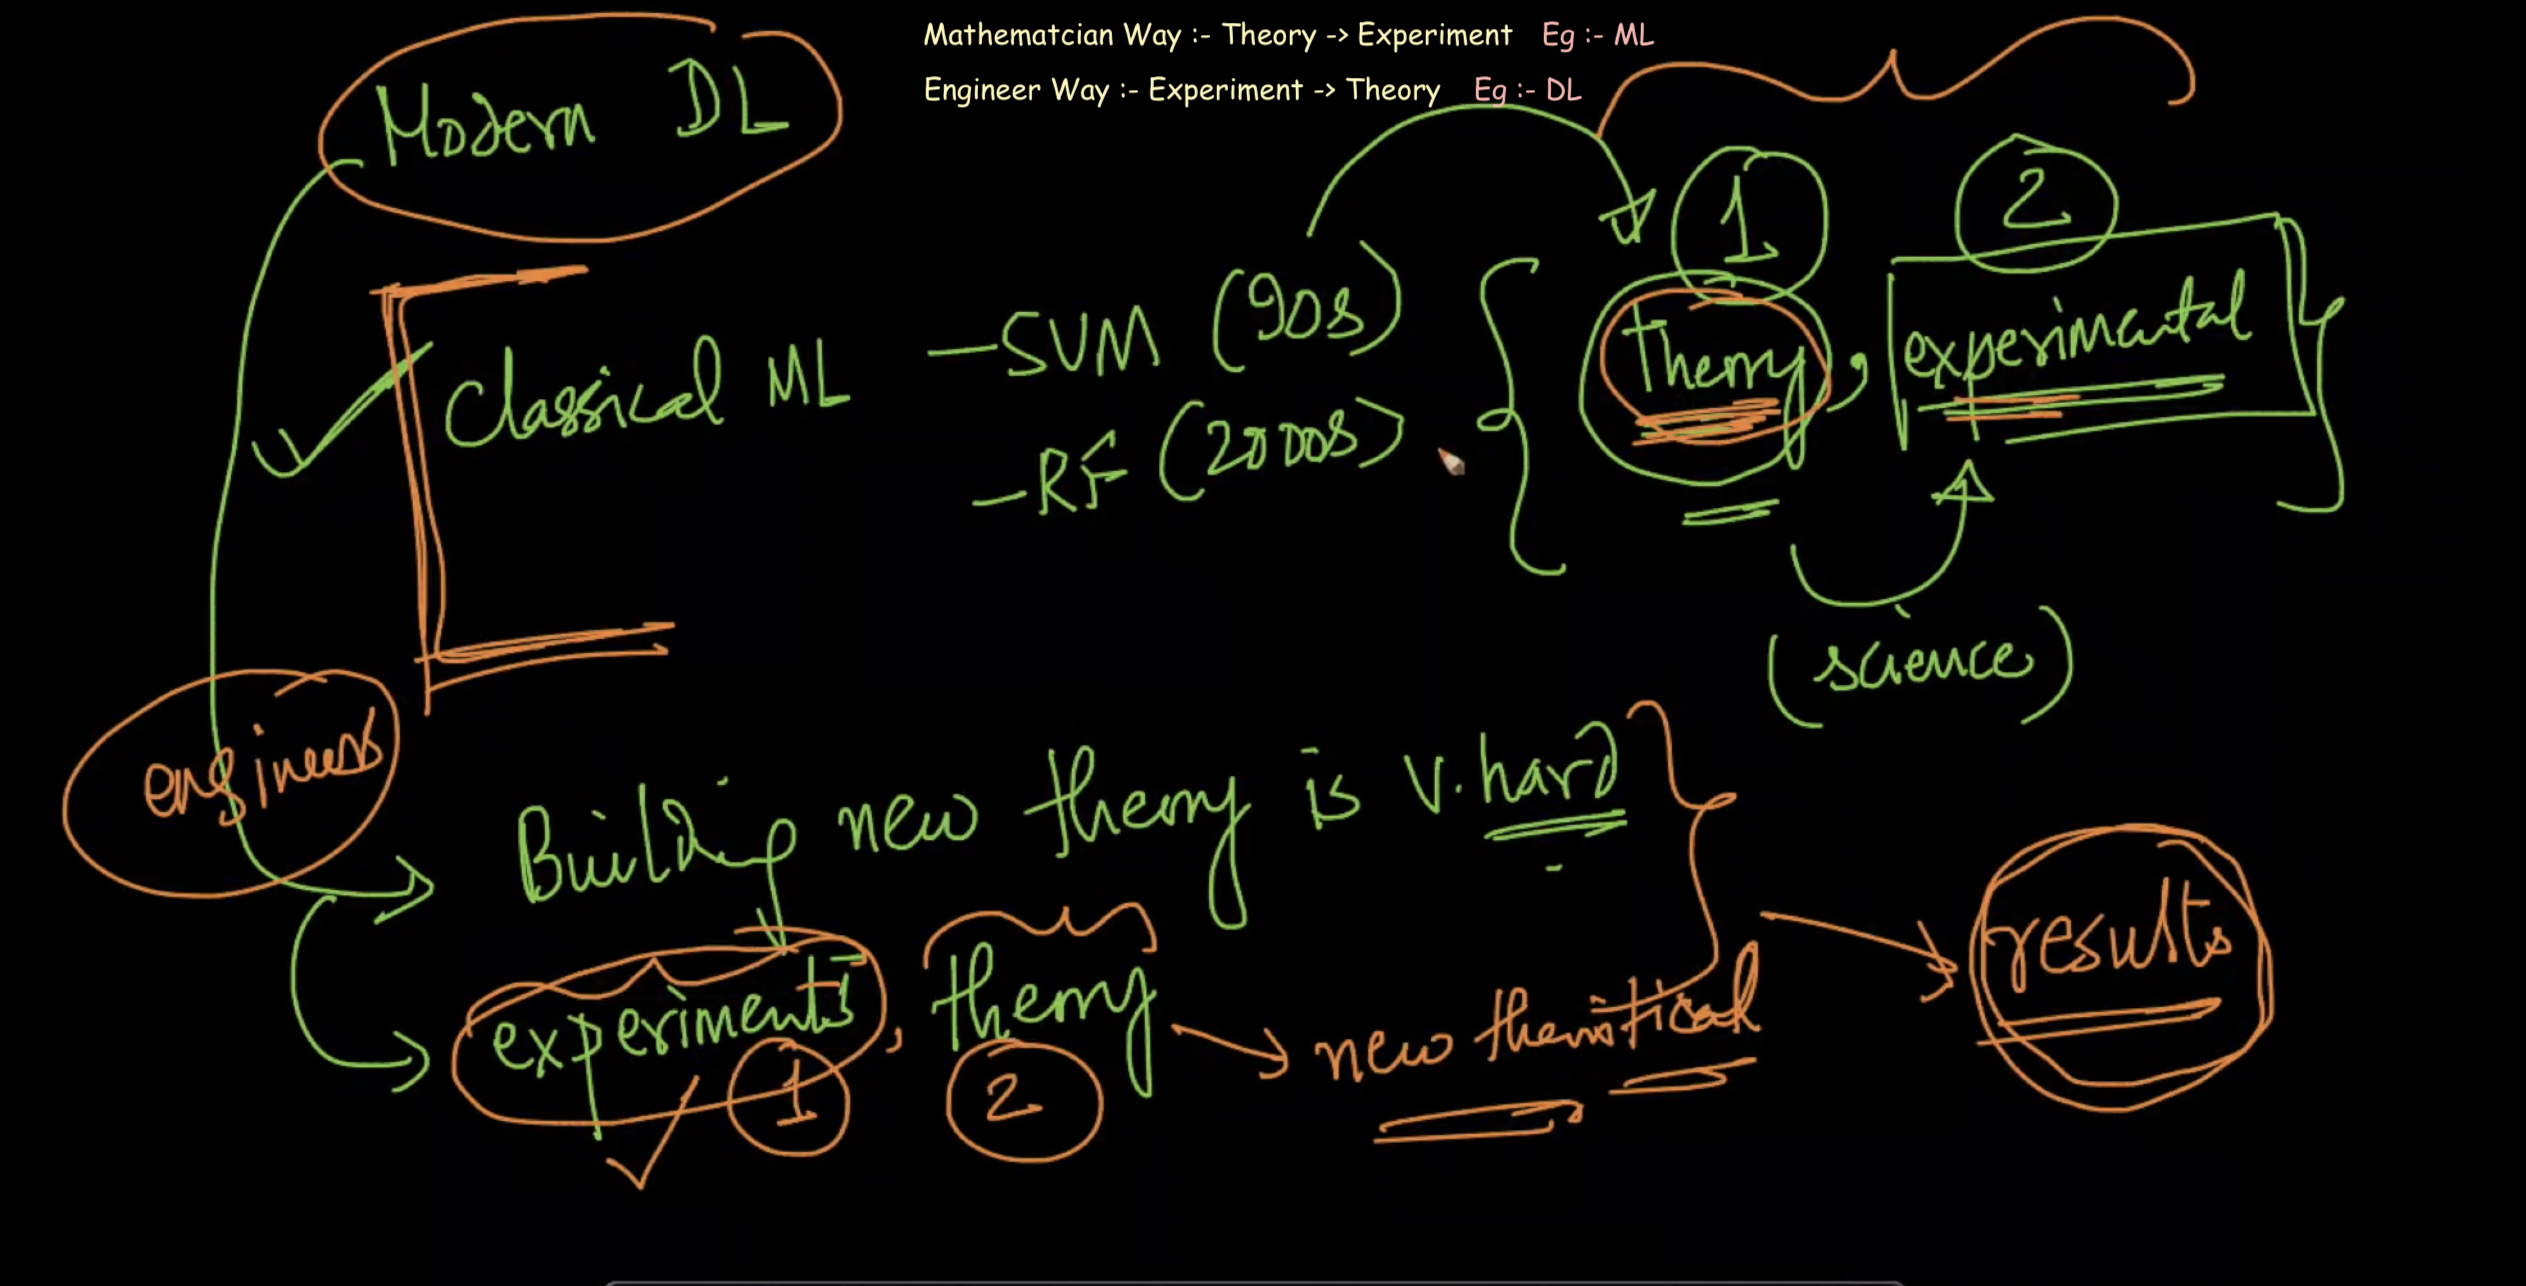 Mathematcian Way :- Theory -> Experiment Eg :- ML
Engineer Way :- Experiment -> Theory Eg :- DL
Modern DL
1 2
Classical ML
-SVM (90s)
-RF (2000s)
Theory, experimental
(science)
engineers
Building new theory is v.hard
experiments, theory
1 2
new theoritical
results